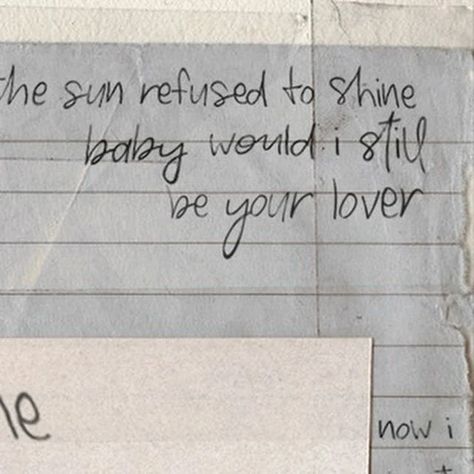 the sun refused to shine
baby would i still
be your lover
now i